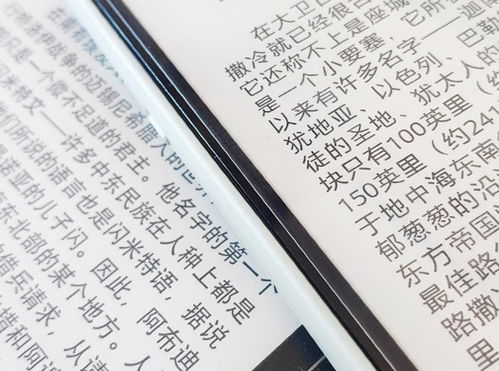 伊战争的迈锡尼希腊人的世
只是一个微不足道的君主。他名字的第一个
特文——许多中东民族在人种上都是
们所说语言也是闪米特语,据说
诺亚的儿子闪。因此,阿布迪
东北部的某个地方。人
借乐请求,从请
墙和阿
在大卫
撒冷就已经很
它还称不上是座城
是一个小要塞 它所
以来有许多名字——迦
犹地亚、以色列、巴勒
徒的圣地、犹太人的
块只有100英里(
150英里(约24
于地中海东南
郁葱葱的沿
东方帝国
最佳路
路撒
里